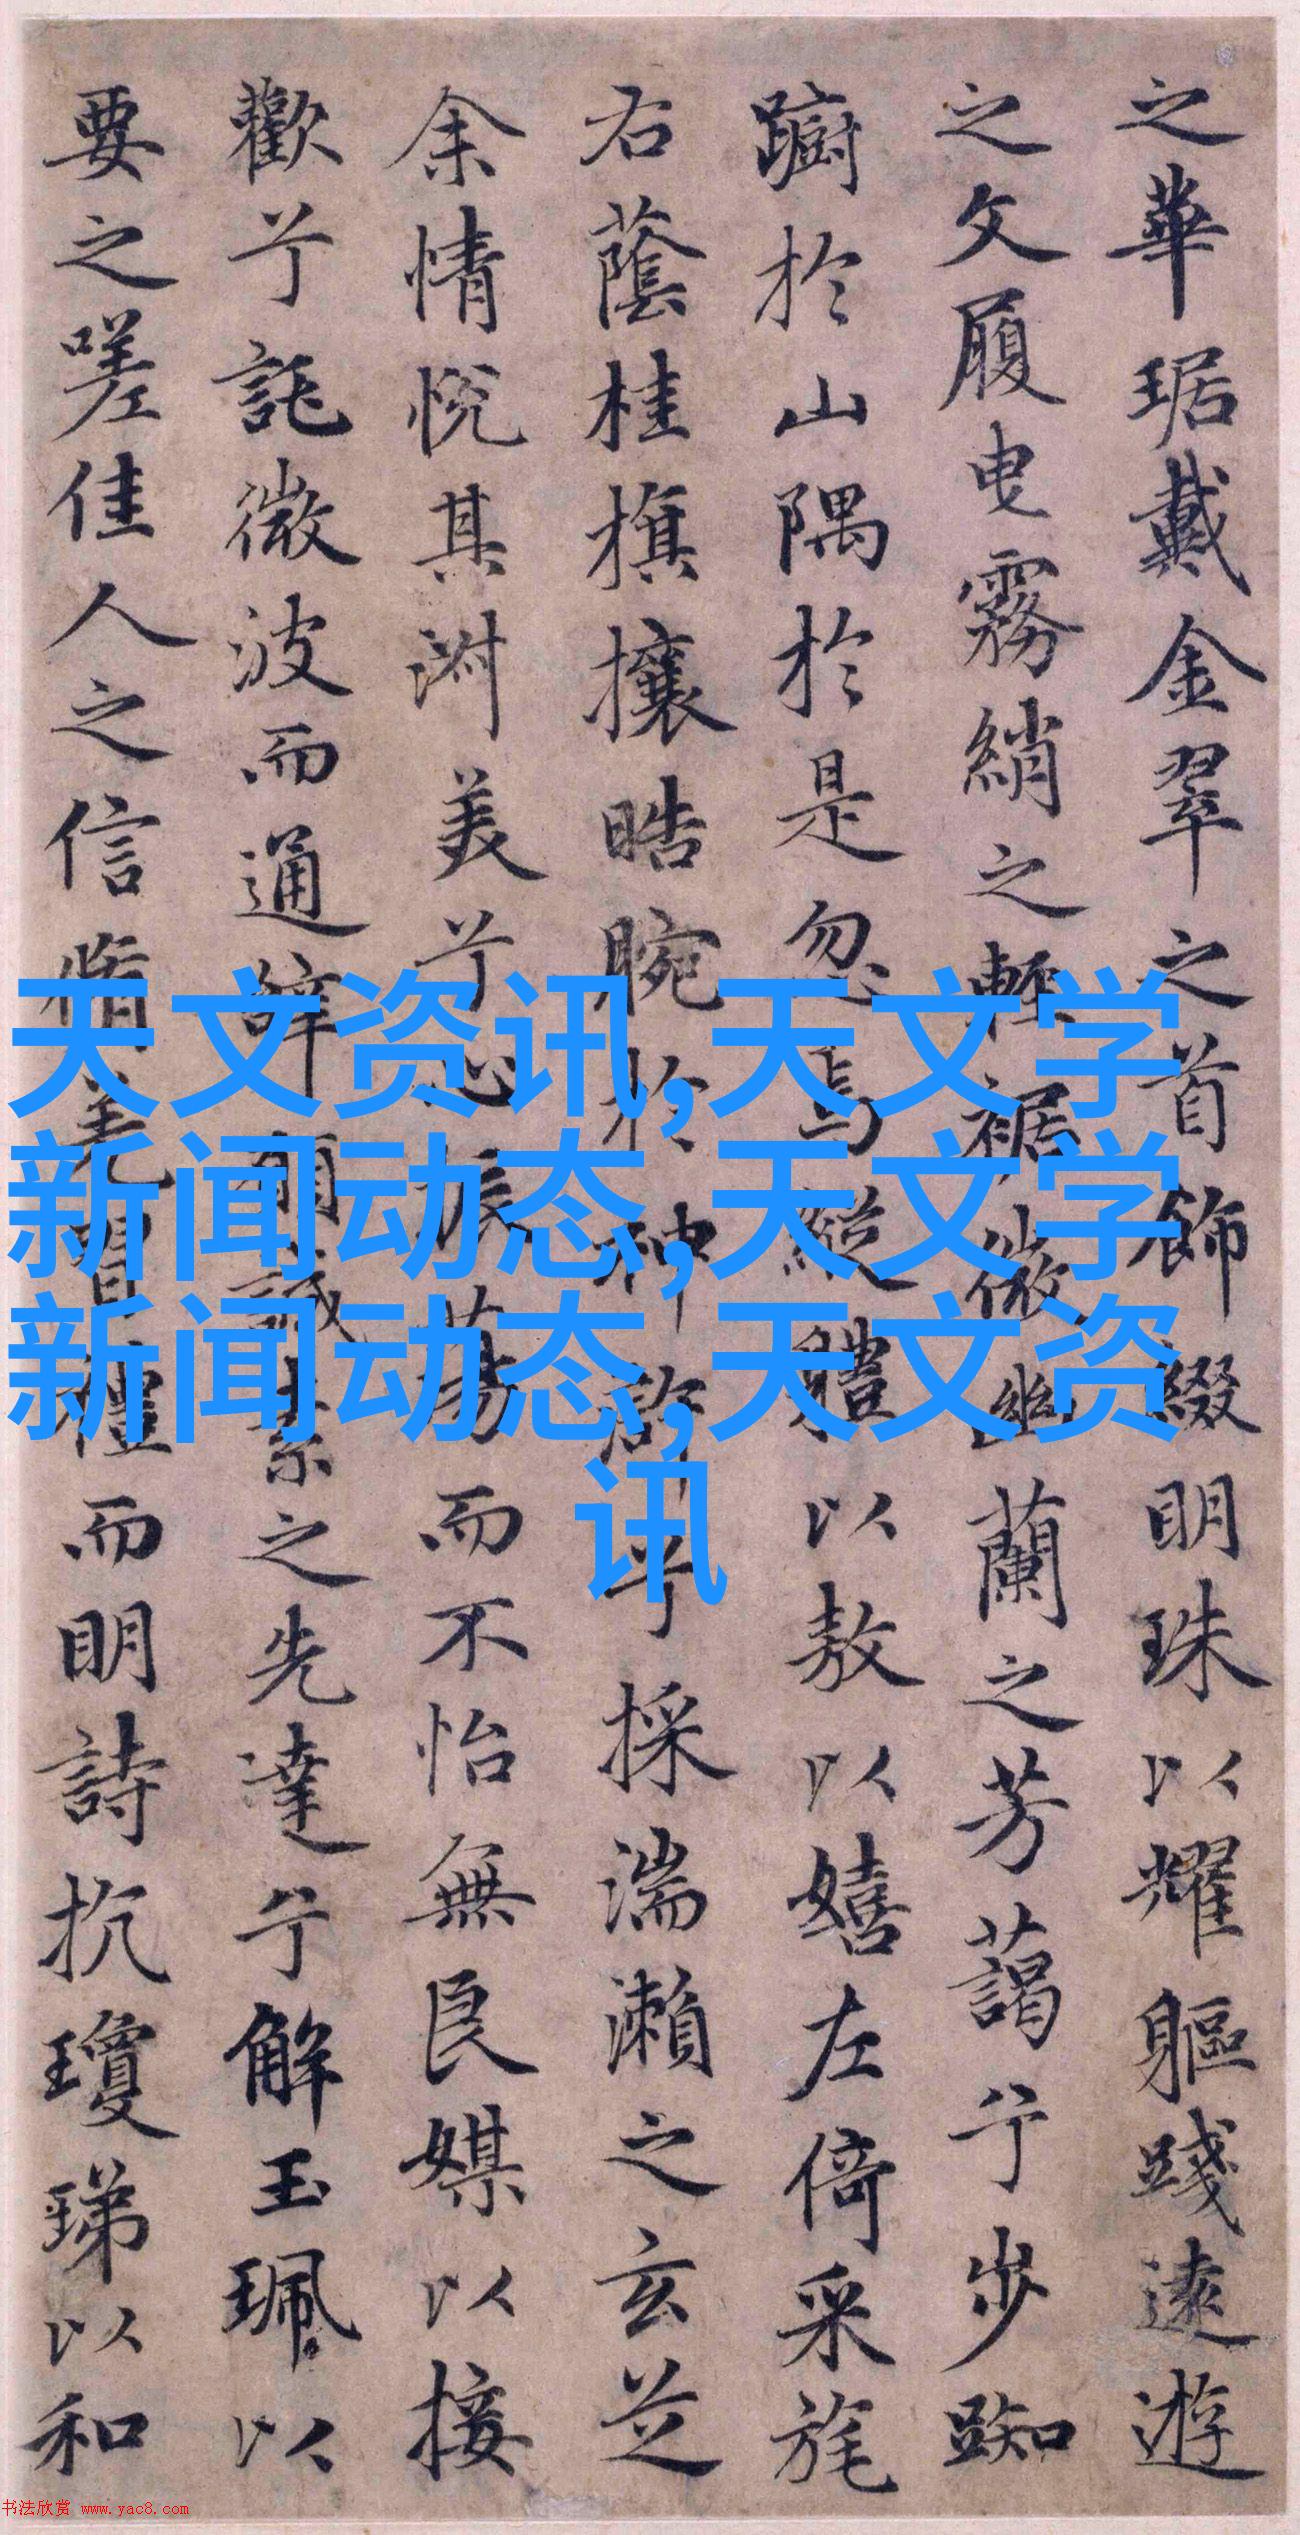 之華琚戴金翠之首飾綴明珠以耀軀踐遠遊
之文履曳霧綃之輕裾微幽蘭之芳藹兮步踟
蹰於山隅於是忽焉縱體以敖以嬉左倚采旄
右蔭桂旗攘晧腕於神滸兮採湍瀨之玄芝
余情悅其淑美兮心振蕩而不怡無良媒以接
歡兮託微波而通辭願誠素之先達兮解玉珮以
要之嗟佳人之信脩羌習禮而明詩抗瓊珶以和
天文资讯,天文学
新闻动态,天文学
新闻动态,天文资
讯
书法欣赏 www.yac8.com